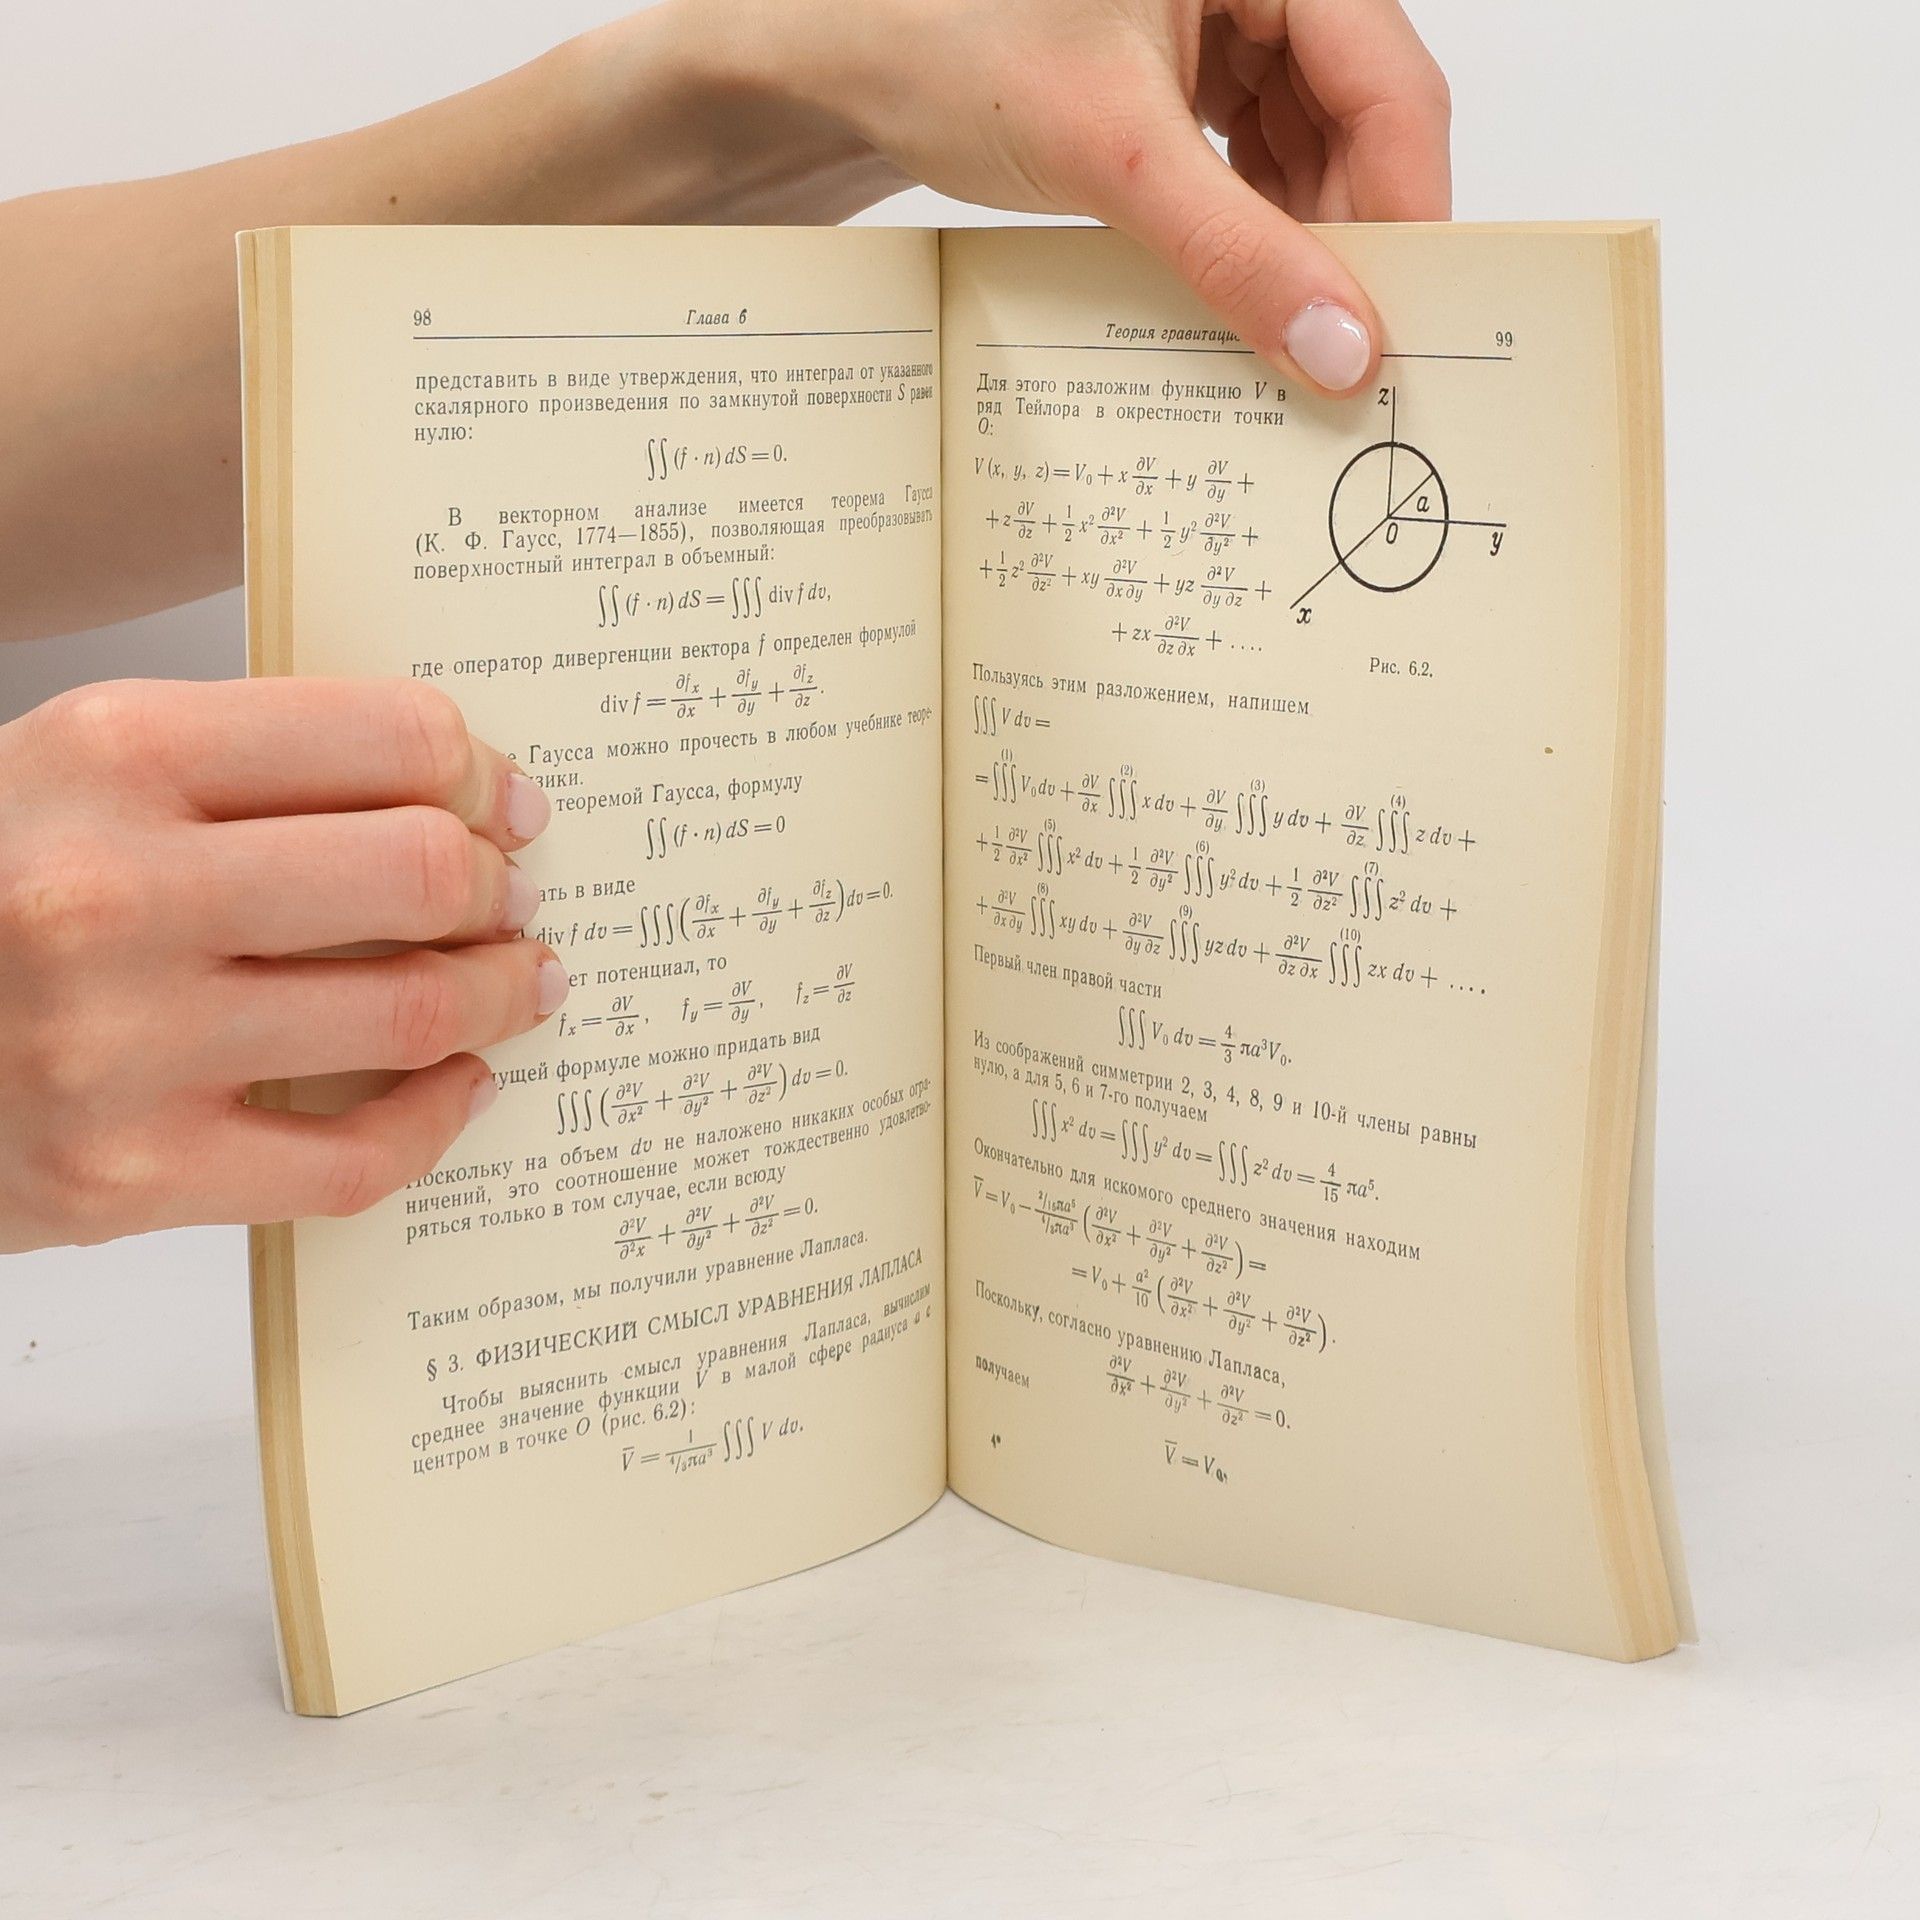 98 Глава 6
представить в виде утверждения, что интеграл от указанного
скалярного произведения по замкнутой поверхности S равен
нулю:
∬(f · n) dS = 0.
В векторном анализе имеется теорема Гаусса
(К. Ф. Гаусс, 1774—1855), позволяющая преобразовывать
поверхностный интеграл в объемный:
∬(f · n) dS = ∭ div f dv,
где оператор дивергенции вектора f определен формулой
div f = ∂f_x/∂x + ∂f_y/∂y + ∂f_z/∂z.
Гаусса можно прочесть в любом учебнике теоре-
теоремой Гаусса, формулу
∬(f · n) dS = 0
в виде
div f dv = ∭(∂f_x/∂x + ∂f_y/∂y + ∂f_z/∂z) dv = 0.
потенциал, то
f_x = ∂V/∂x, f_y = ∂V/∂y, f_z = ∂V/∂z
формуле можно придать вид
∭(∂²V/∂x² + ∂²V/∂y² + ∂²V/∂z²) dv = 0.
Поскольку на объем dv не наложено никаких особых огра-
ничений, это соотношение может тождественно удовлетво-
ряться только в том случае, если всюду
∂²V/∂²x + ∂²V/∂y² + ∂²V/∂z² = 0.
Таким образом, мы получили уравнение Лапласа.
§ 3. ФИЗИЧЕСКИЙ СМЫСЛ УРАВНЕНИЯ ЛАПЛАСА
Чтобы выяснить смысл уравнения Лапласа, вычислим
среднее значение функции V в малой сфере радиуса a с
центром в точке O (рис. 6.2):
V̄ = 1/(⁴/₃πa³) ∭ V dv.
Теория 99
Для этого разложим функцию V в
ряд Тейлора в окрестности точки
O:
V (x, y, z) = V₀ + x ∂V/∂x + y ∂V/∂y +
+ z ∂V/∂z + 1/2 x² ∂²V/∂x² + 1/2 y² ∂²V/∂y² +
+ 1/2 z² ∂²V/∂z² + xy ∂²V/∂x ∂y + yz ∂²V/∂y ∂z +
+ zx ∂²V/∂z ∂x + ....
z
a
O
y
x
Рис. 6.2.
Пользуясь этим разложением, напишем
∭ V dv =
(1) (2) (3) (4)
= ∭ V₀ dv + ∂V/∂x ∭ x dv + ∂V/∂y ∭ y dv + ∂V/∂z ∭ z dv +
(5) (6) (7)
+ 1/2 ∂²V/∂x² ∭ x² dv + 1/2 ∂²V/∂y² ∭ y² dv + 1/2 ∂²V/∂z² ∭ z² dv +
(8) (9) (10)
+ ∂²V/∂x ∂y ∭ xy dv + ∂²V/∂y ∂z ∭ yz dv + ∂²V/∂z ∂x ∭ zx dv + ....
Первый член правой части
∭ V₀ dv = 4/3 πa³V₀.
Из соображений симметрии 2, 3, 4, 8, 9 и 10-й члены равны
нулю, а для 5, 6 и 7-го получаем
∭ x² dv = ∭ y² dv = ∭ z² dv = 4/15 πa⁵.
Окончательно для искомого среднего значения находим
V̄ = V₀ − (²/₁₅πa⁵)/(⁴/₃πa³) (∂²V/∂x² + ∂²V/∂y² + ∂²V/∂z²) =
= V₀ + a²/10 (∂²V/∂x² + ∂²V/∂y² + ∂²V/∂z²).
Поскольку, согласно уравнению Лапласа,
∂²V/∂x² + ∂²V/∂y² + ∂²V/∂z² = 0.
получаем
V̄ = V₀.
4*